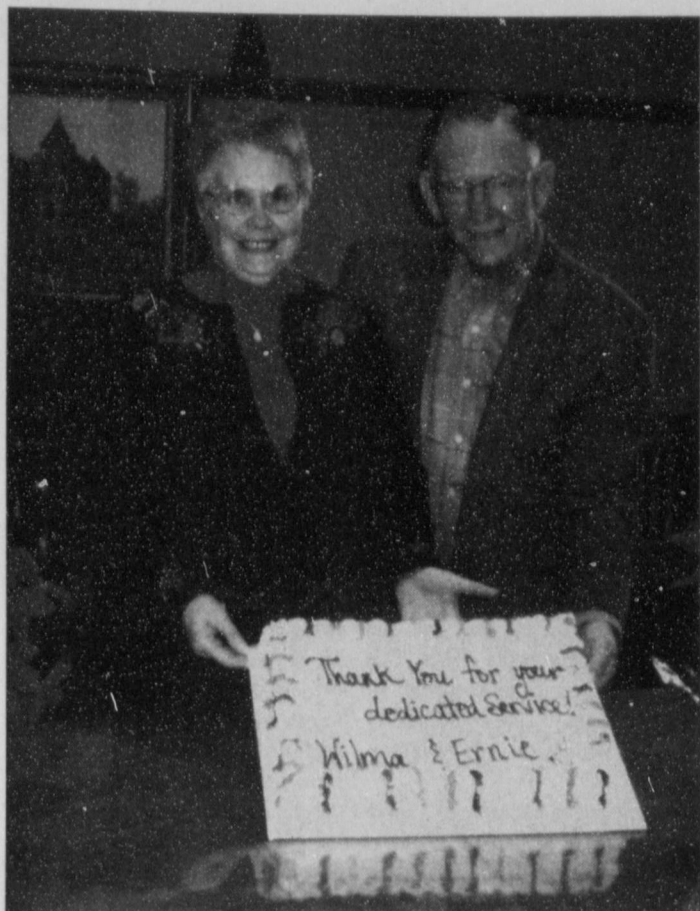 Thank You for your
dedicated Service!
Wilma & Ernie.